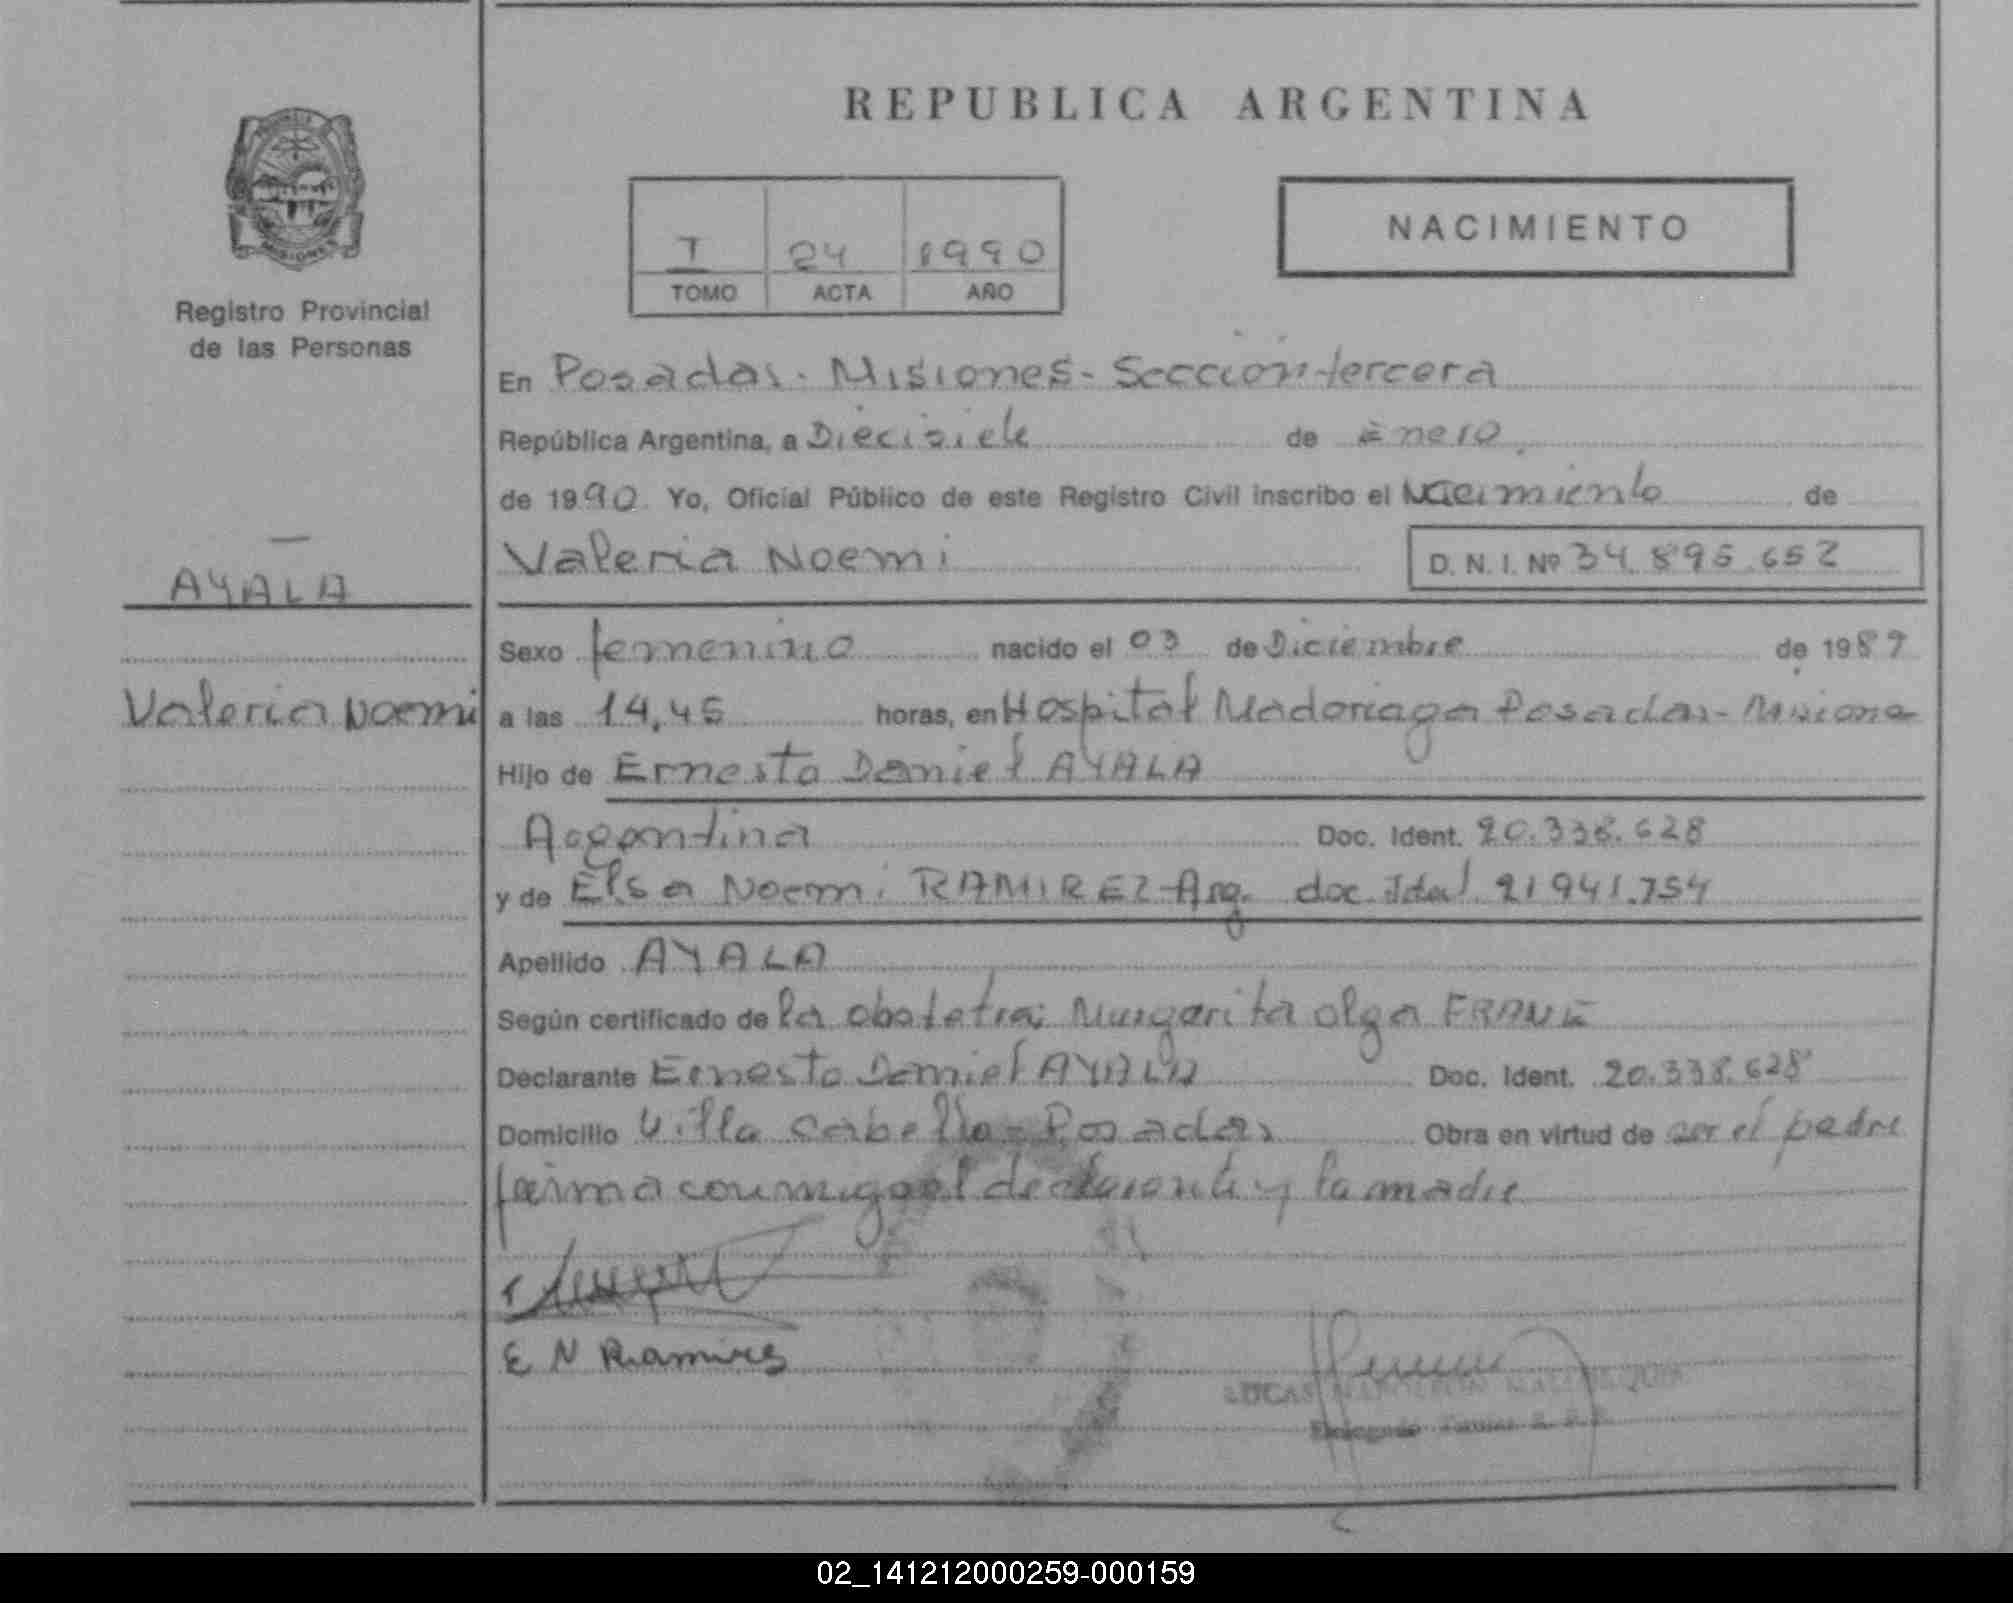 REPUBLICA ARGENTINA
Registro Provincial
de las Personas
I 24 1990
TOMO ACTA AÑO
NACIMIENTO
AYALA
Valeria Noemi
En Posadas - Misiones - Sección tercera
República Argentina, a Diecisiete de Enero
de 1990 Yo, Oficial Público de este Registro Civil inscribo el Nacimiento de
Valeria Noemi D. N. I. Nº 34.895.652
Sexo femenino nacido el 03 de Diciembre de 1989
a las 14,45 horas, en Hospital Madariaga Posadas - Misiones
Hijo de Ernesto Daniel AYALA
Argentina Doc. Ident. 20.338.628
y de Elsa Noemi RAMIREZ - Arg. doc. Ident 21 941.754
Apellido AYALA
Según certificado de la obstetra Margarita Olga
Declarante Ernesto Daniel AYALA Doc. Ident. 20.338.628
Domicilio Villa Cabello - Posadas Obra en virtud de ser el padre
firma conmigo el declarante y la madre
E N Ramires
LUCAS
Delegado Titular R. P. P.
02_141212000259-000159